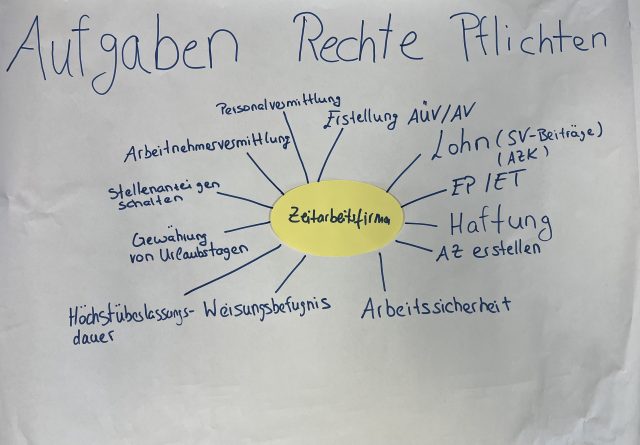 Aufgaben Rechte Pflichten
Personalvermittlung
Erstellung AÜV/AV
Arbeitnehmervermittlung
Lohn (SV-Beiträge)
(AZK)
Stellenanzeigen
schalten
EP/ET
Zeitarbeitsfirma
Haftung
Gewährung
von Urlaubstagen
AZ erstellen
Höchstüberlassungs-
dauer
Weisungsbefugnis
Arbeitssicherheit